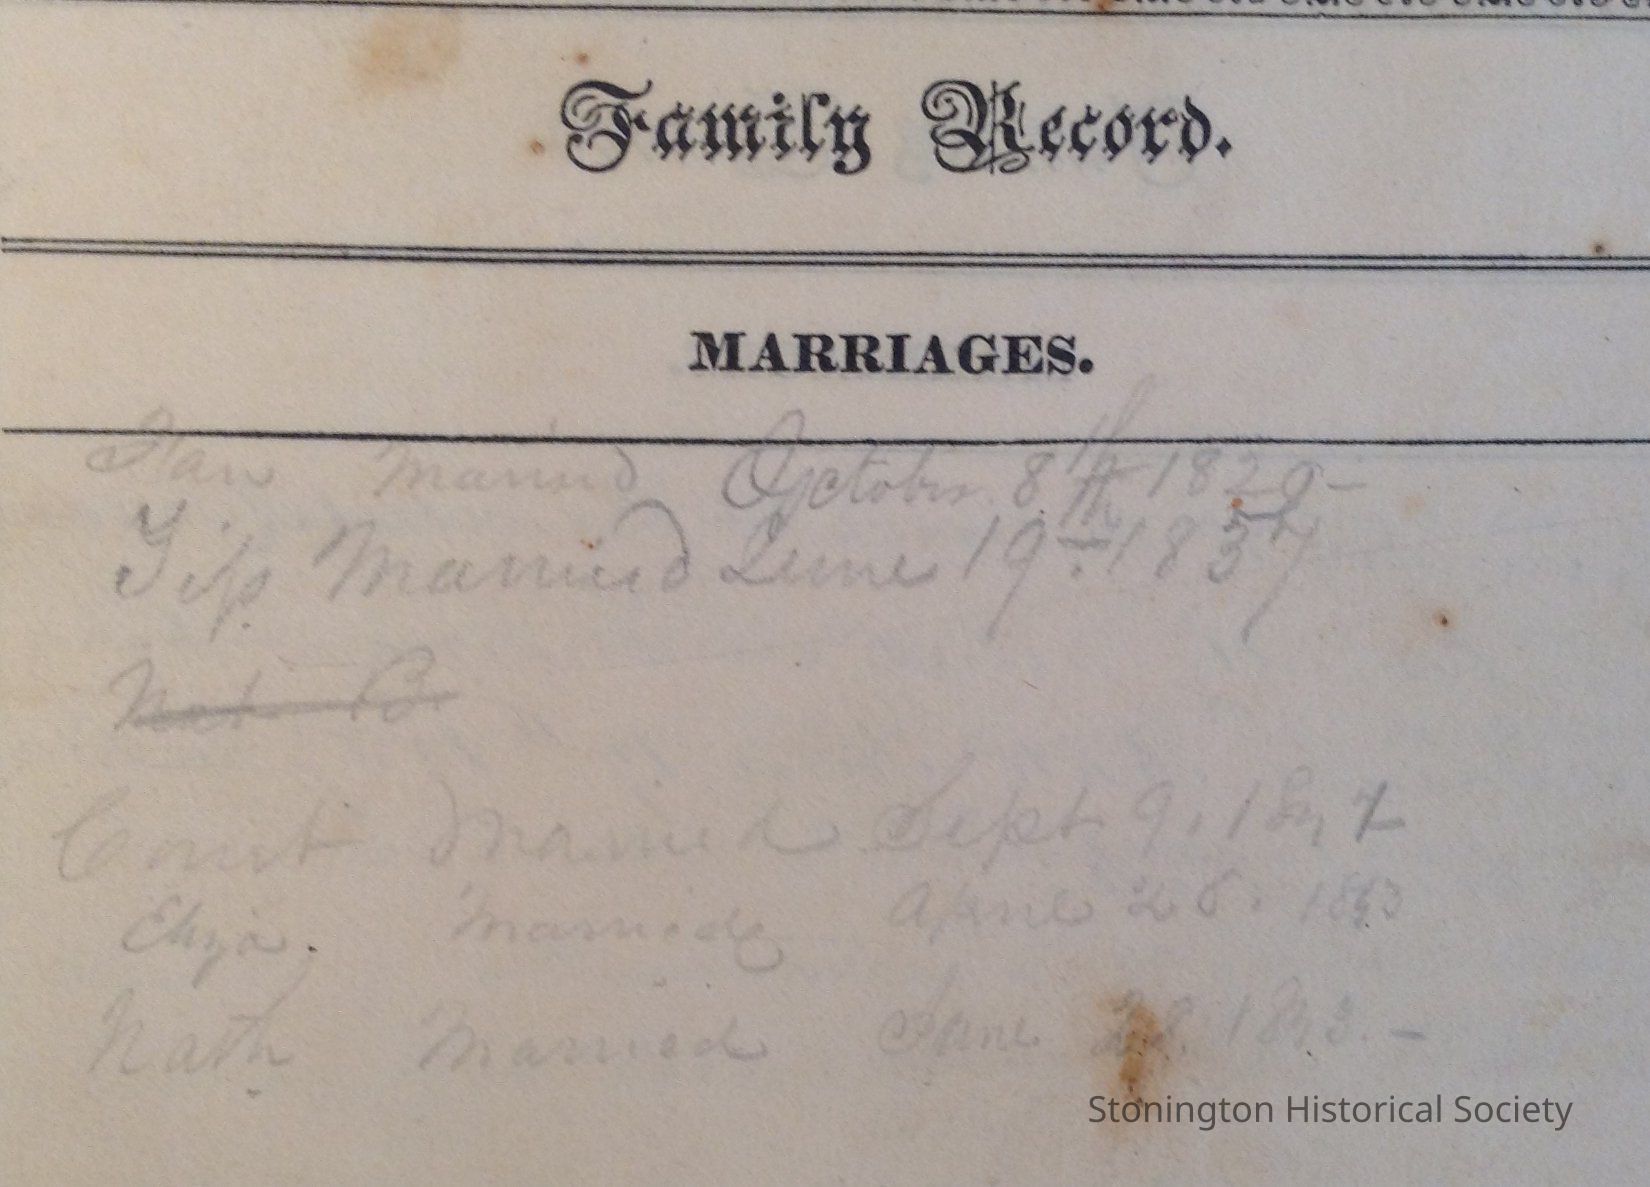 Family Record.
MARRIAGES.
Married October 8th 1829-
Married June 19th 1837
B.
Married Sept 9, 18 7
Eliza. Married April 26. 18 3
Nath Married June 18 3.-
Stonington Historical Society